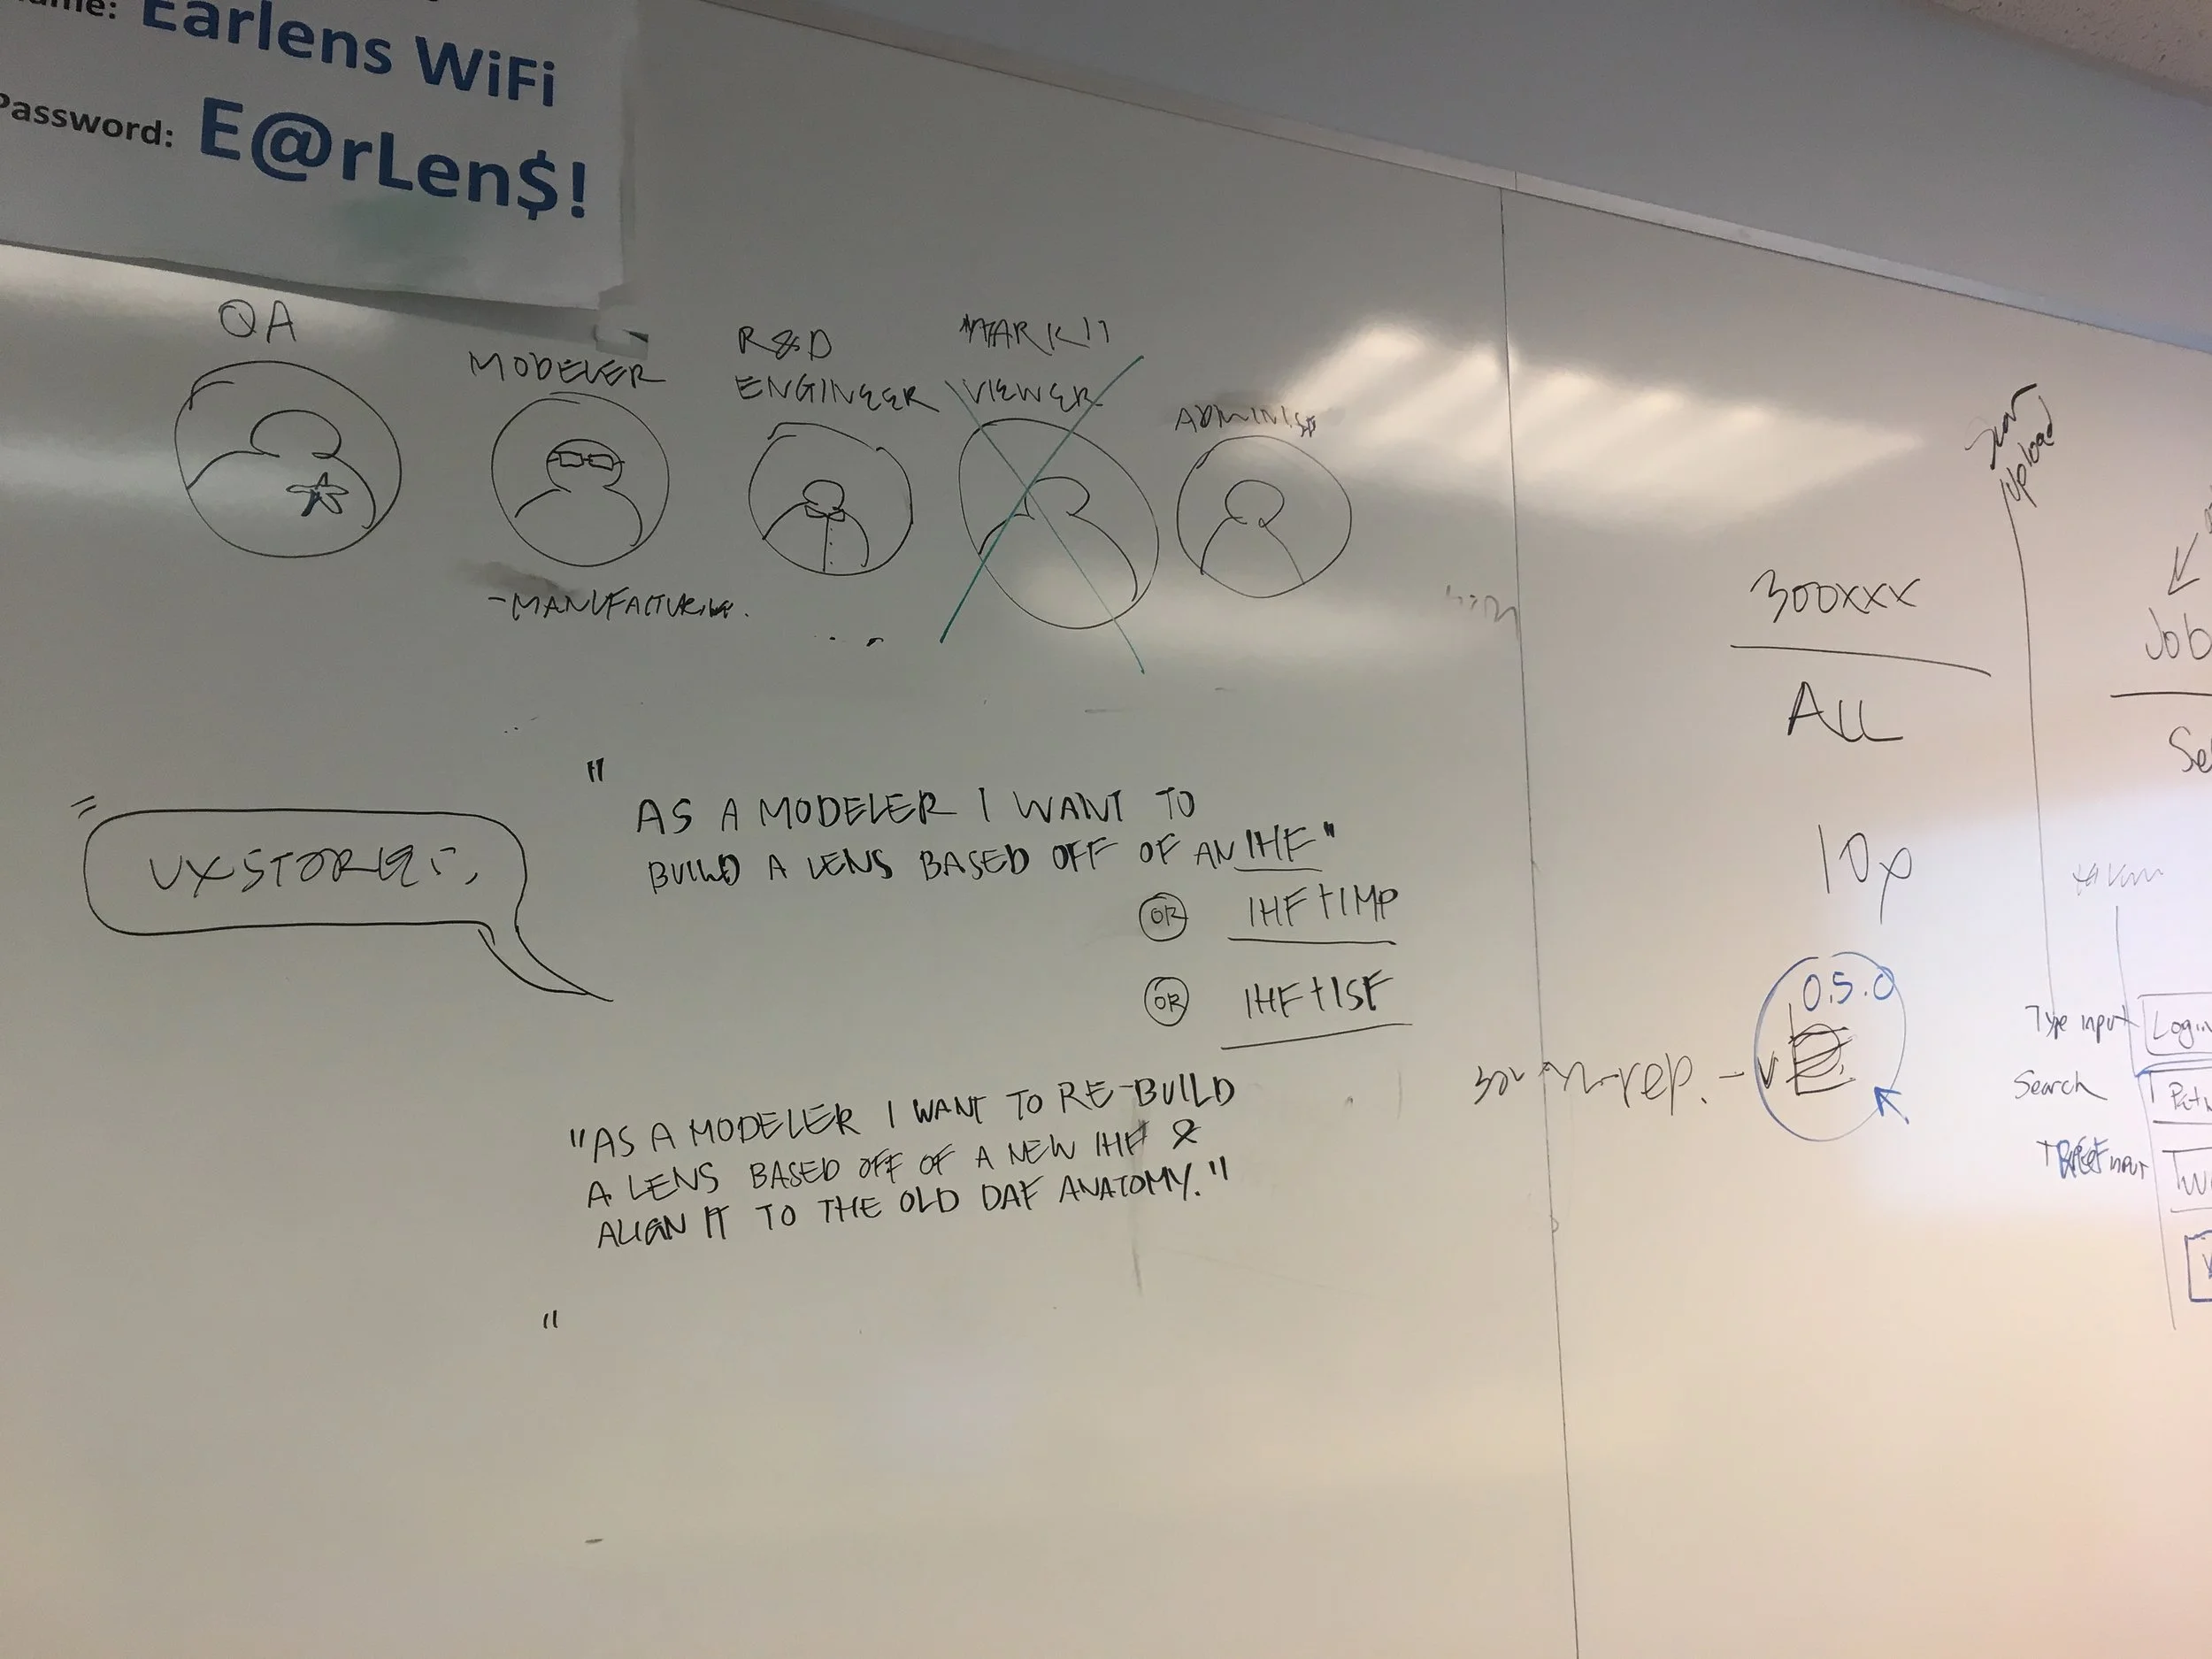 Earlens WiFi
Password: E@rLen$!
QA
MODELER
R&D
ENGINEER
VIEWER
-MANUFACTURING.
UX STORIES
"
AS A MODELER I WANT TO
BUILD A LENS BASED OFF OF AN IHF"
OR IHF+IMP
OR IHF+ISF
"AS A MODELER I WANT TO RE-BUILD
A LENS BASED OFF OF A NEW IHF &
ALIGN IT TO THE OLD DAF ANATOMY."
"
300xxx
ALL
10x
0.5.0
rep. - v
Upload
Job
Type input
Search
input